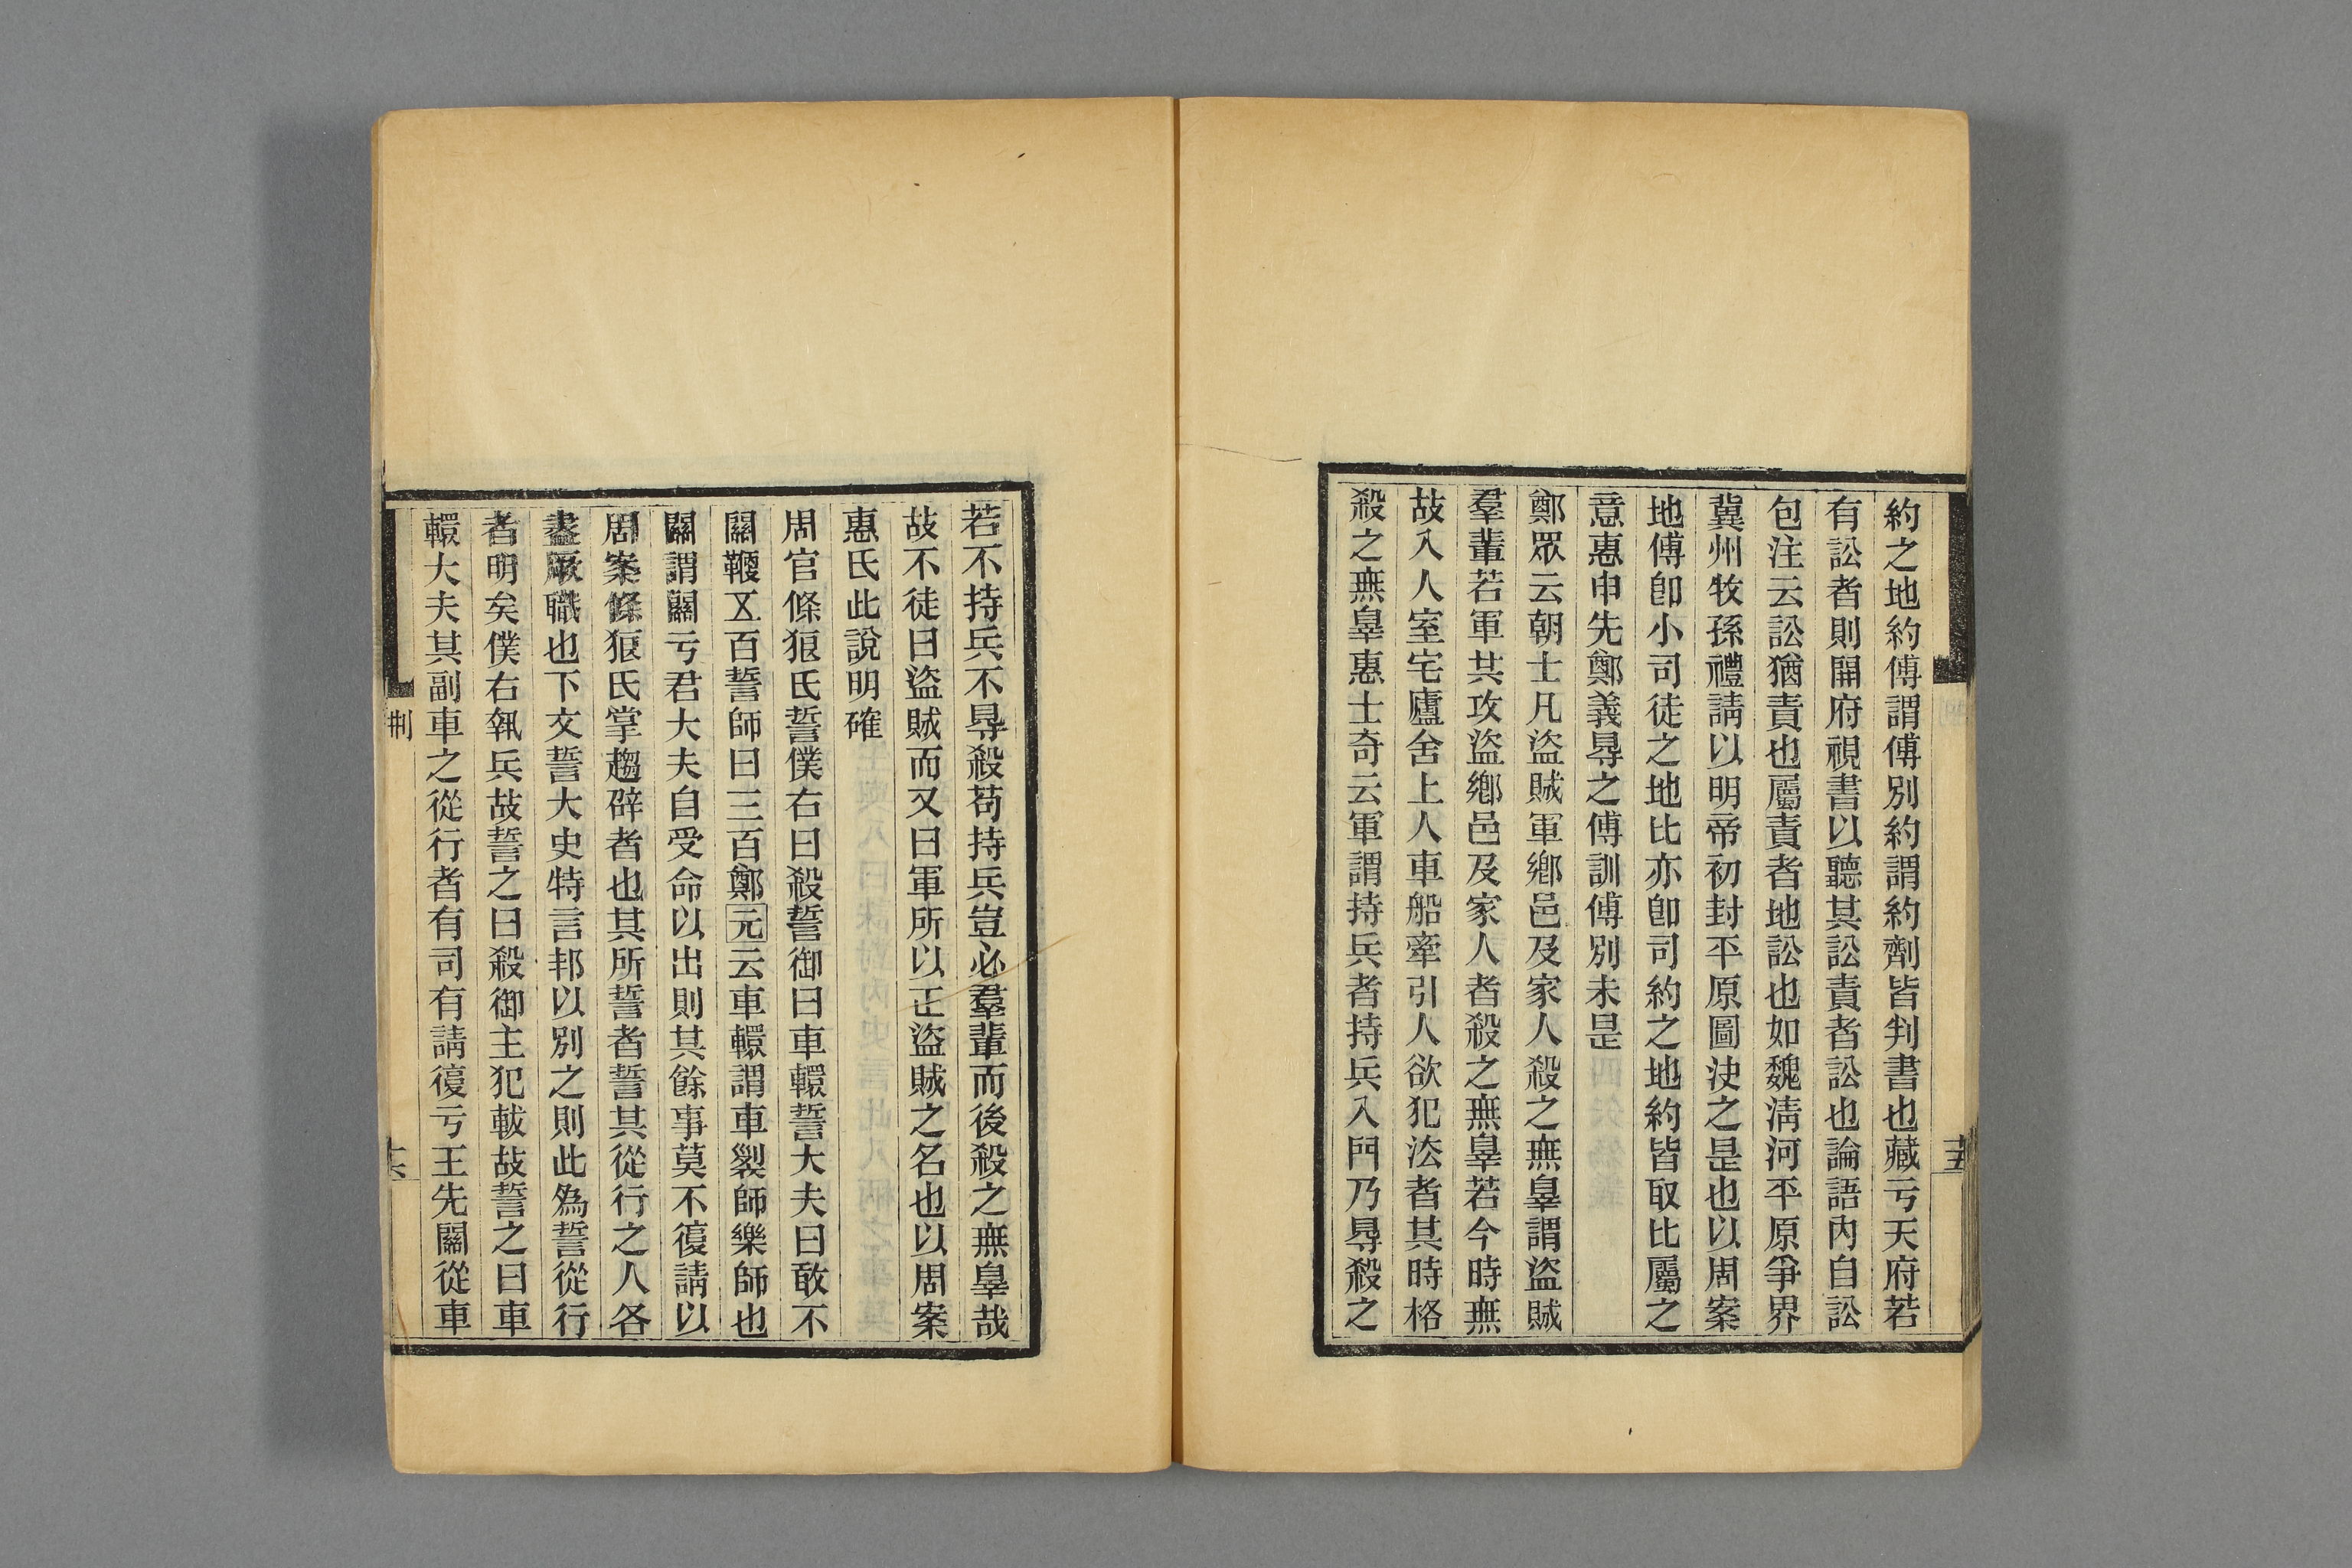 約之地約傅謂傅別約謂約劑皆判書也藏亏天府若
有訟者則開府視書以聽其訟責者訟也論語內自訟
包注云訟猶責也屬責者地訟也如魏淸河平原爭界
冀州牧孫禮請以明帝初封平原圖決之是也以周案
地傅卽小司徒之地比亦卽司約之地約皆取比屬之
意惠申先鄭義㝵之傅訓傅別未是
鄭眾云朝士凡盜賊軍鄉邑及家人殺之無辠謂盜賊
羣輩若軍共攻盜鄉邑及家人者殺之無辠若今時無
故入人室宅廬舍上人車船牽引人欲犯法者其時格
殺之無辠惠士奇云軍謂持兵者持兵入門乃㝵殺之
十五
若不持兵不㝵殺苟持兵豈必羣輩而後殺之無辠哉
故不徒曰盜賊而又曰軍所以正盜賊之名也以周案
惠氏此說明確
周官條狼氏誓僕右曰殺誓御曰車轘誓大夫曰敢不
關鞭五百誓師曰三百鄭元云車轘謂車裂師樂師也
關謂關亏君大夫自受命以出則其餘事莫不復請以
周案條狼氏掌趨辟者也其所誓者誓其從行之人各
盡厥職也下文誓大史特言邦以別之則此爲誓從行
者明矣僕右執兵故誓之曰殺御主犯軷故誓之曰車
轘大夫其副車之從行者有司有請復亏王先關從車
刑
十六